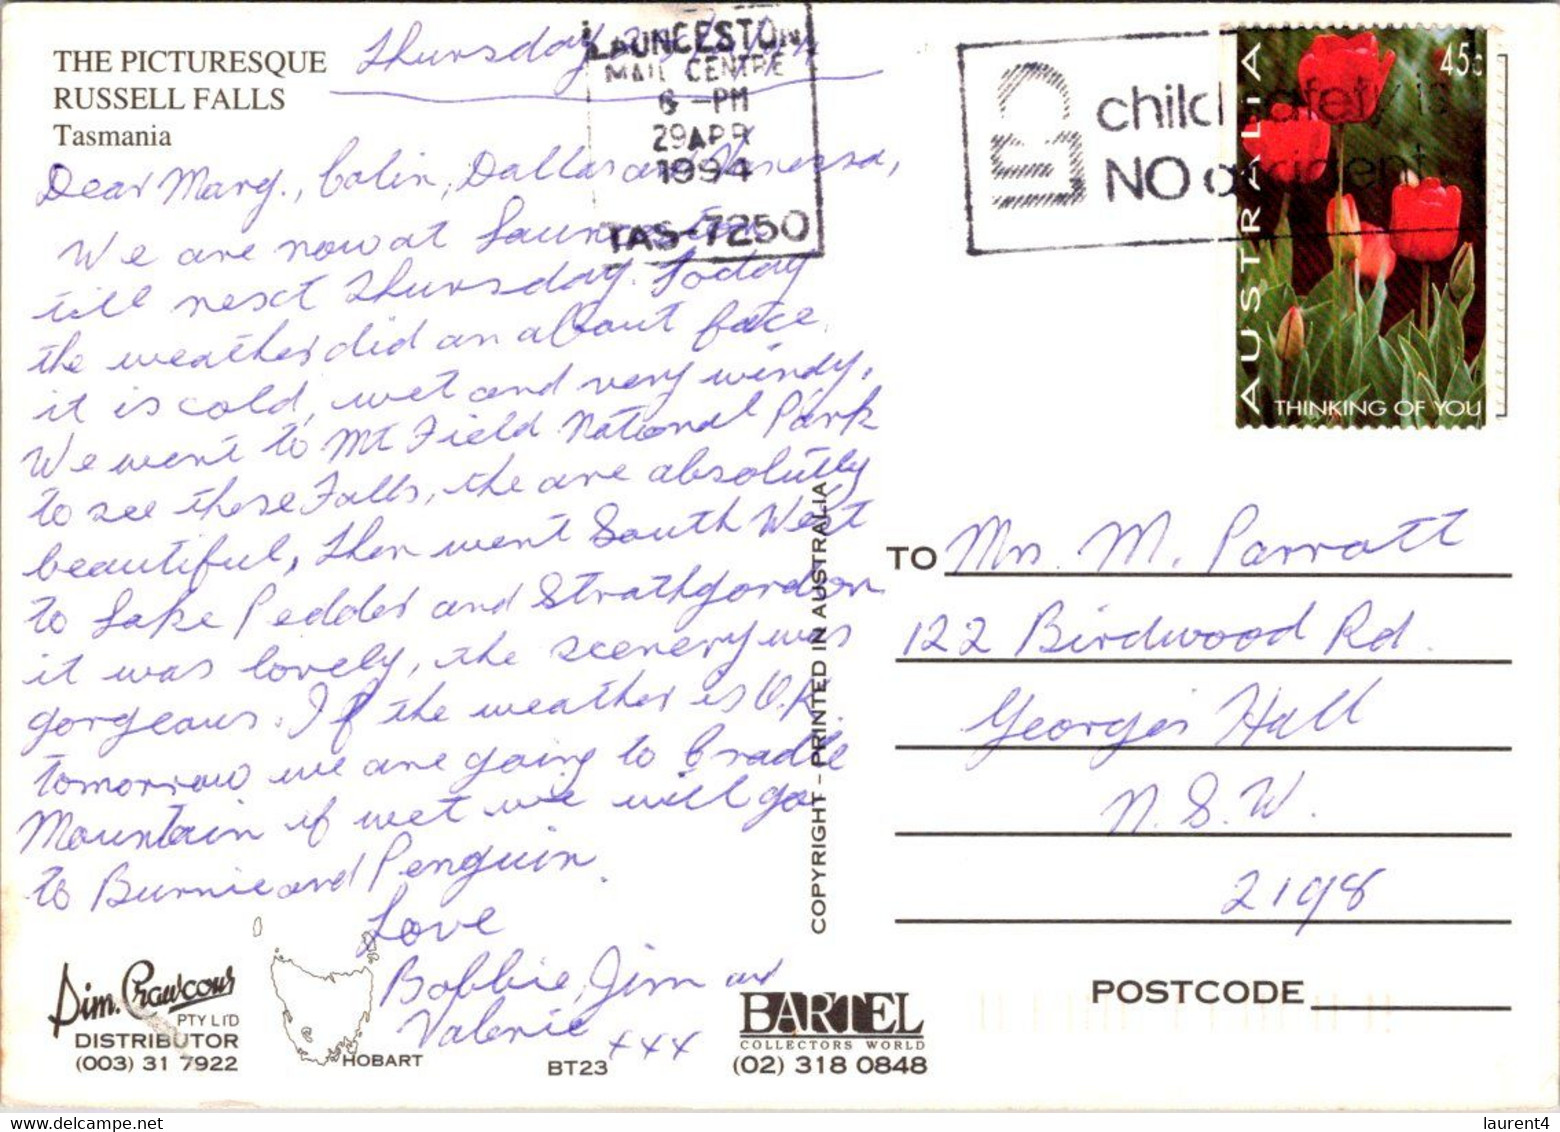 THE PICTURESQUE
RUSSELL FALLS
Tasmania
Thursday
LAUNCESTON
MAIL CENTRE
6 -PM
29APR
1994
TAS-7250
child safety is
NO accident
AUSTRALIA
45c
THINKING OF YOU
Dear Mary., Colin, Dallas and Vanessa,
We are now at Launceston
till next Thursday. Today
the weather did an about face,
it is cold, wet and very windy.
We went to Mt Field National Park
to see these Falls, the are absolutly
beautiful, then went South West
to Lake Pedder and Strathgordon
it was lovely, the scenery was
gorgeous. If the weather is O.K.
tomorrow we are going to Cradle
Mountain if wet we will go
to Burnie and Penguin.
Love
Bobbie, Jim and
Valerie xxx
TO Mrs. M. Parratt
122 Birdwood Rd.
Georges Hall
N.S.W.
2198
POSTCODE
COPYRIGHT - PRINTED IN AUSTRALIA
Sim. Crawcour
PTY LTD
DISTRIBUTOR
(003) 31 7922
HOBART
BT23
BARTEL
COLLECTORS WORLD
(02) 318 0848
www.delcampe.net
laurent4